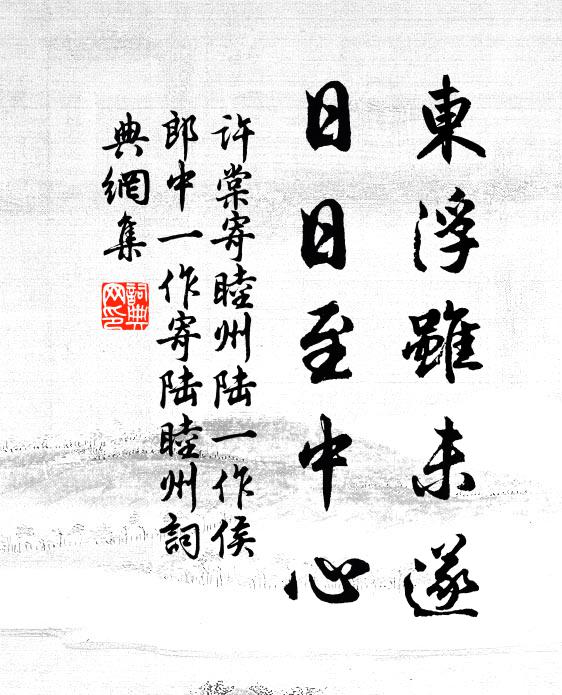 東浮雖未遂
日日至中心
許棠寄睦州陸一作侯
郎中一作寄陸睦州詞
典網集
詞典
网印